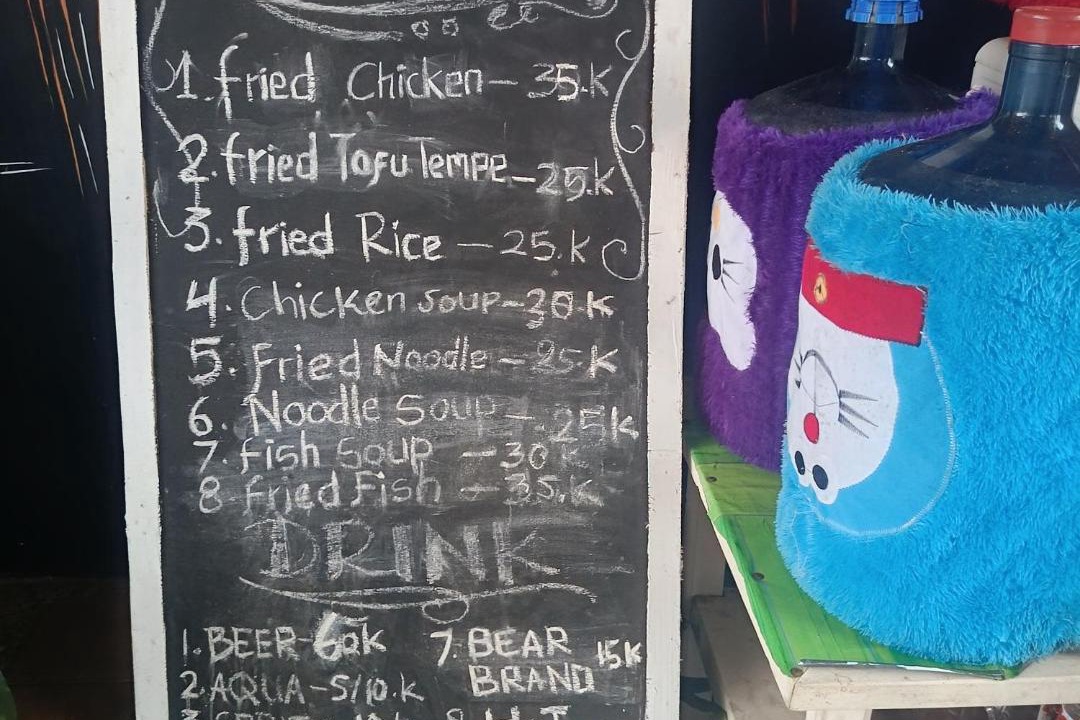 1. fried Chicken - 35.K
2. fried Tofu Tempe - 25.K
3. fried Rice - 25.K
4. Chicken soup - 30.K
5. Fried Noodle - 25.K
6. Noodle Soup - 25K
7. fish Soup - 30 K
8 fried Fish - 35.K
DRINK
1. BEER - 60K
2 AQUA - 5/10.K
7. BEAR BRAND 15K